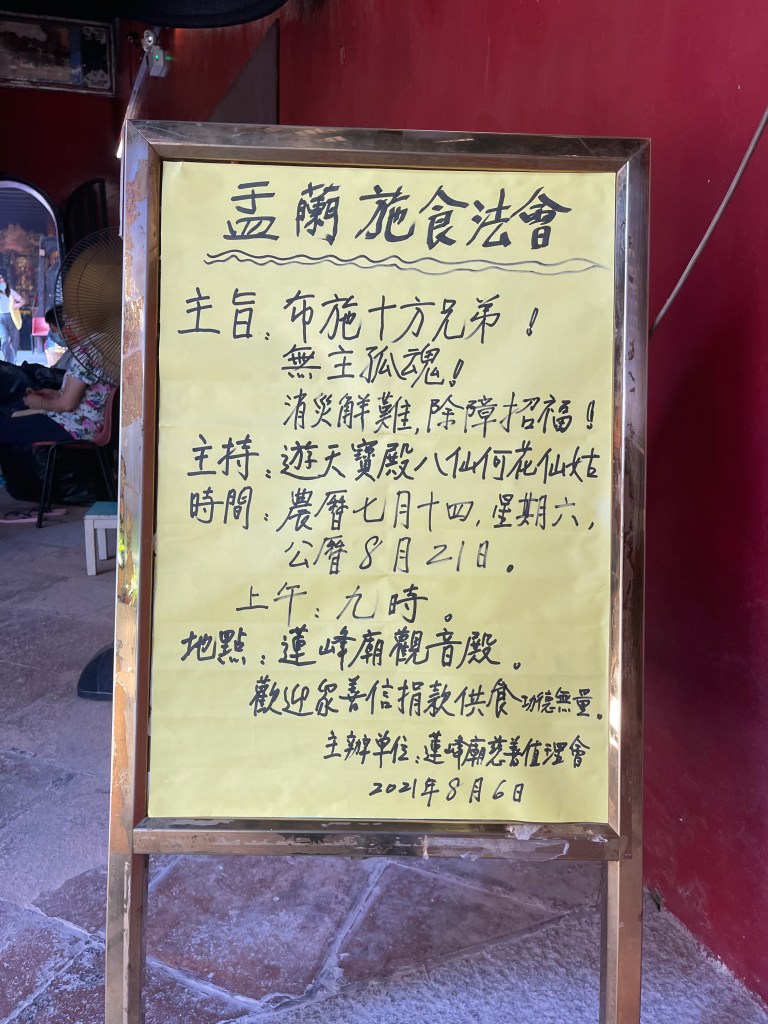 盂蘭施食法會
主旨：布施十方兄弟！
無主孤魂！
消災解難，除障招福！
主持：遊天寶殿八仙何花仙姑
時間：農曆七月十四，星期六，
公曆8月21日。
上午：九時。
地點：蓮峰廟觀音殿。
歡迎眾善信捐款供食功德無量。
主辦单位：蓮峰廟慈善值理會
2021年8月6日